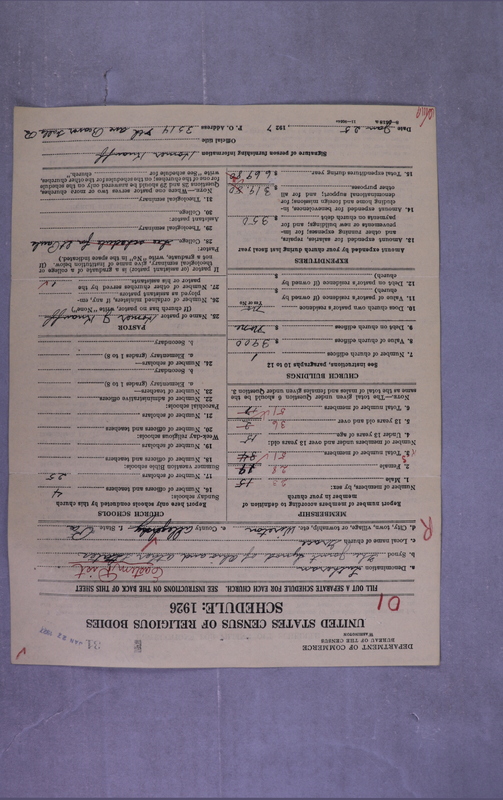 DEPARTMENT OF COMMERCE
BUREAU OF THE CENSUS
WASHINGTON
31
JAN 22 1927
UNITED STATES CENSUS OF RELIGIOUS BODIES
SCHEDULE: 1926
01
FILL OUT A SEPARATE SCHEDULE FOR EACH CHURCH. SEE INSTRUCTIONS ON THE BACK OF THIS SHEET
a. Denomination Lutheran Eastern Dist
b. Synod The Joint Synod of Ohio and other States
c. Local name of church Grace
d. City, town, village, or township, etc. e. County Allegheny f. State Pa
R
MEMBERSHIP
Report number of members according to definition of member in your church
Number of members, by sex:
1. Male 15
2. Female 19
3. Total number of members 34
Number of members under and over 13 years old:
4. Under 13 years of age 15
5. 13 years old and over 36
6. Total number of members 51
NOTE.—The total given under Question 6 should be the same as the total of males and females given under question 3.
CHURCH BUILDINGS
See Instructions, paragraphs 10 to 12
7. Number of church edifices 1
8. Value of church edifices $
9. Debt on church edifices $ None
10. Does church own pastor's residence
Yes or No
11. Value of pastor's residence (if owned by church) $
12. Debt on pastor's residence (if owned by church) $
EXPENDITURES
Amount expended by your church during last fiscal year
13. Amount expended for salaries, repairs, and other running expenses; for improvements or new buildings; and for payments on church debt $ 350
14. Amount expended for benevolences, including home and foreign missions; for denominational support; and for all other purpose. $ 319.80
15. Total expenditures during year $ 669.80
CHURCH SCHOOLS
Report here only schools conducted by this church
Sunday schools:
16. Number of officers and teachers 4
17. Number of scholars 25
Summer vacation Bible schools:
18. Number of officers and teachers
19. Number of scholars
Week-day religious schools:
20. Number of officers and teachers
21. Number of scholars
Parochial schools:
22. Number of administrative officers
23. Number of teachers—
a. Elementary (grades 1 to 8)
b. Secondary
24. Number of scholars—
a. Elementary (grades 1 to 8)
b. Secondary
PASTOR
25. Name of pastor Homer J Knauff
(If church has no pastor, write "None")
26. Number of ordained ministers, if any, employed as assistant pastors.
27. Number of other churches served by the pastor or his assistants.
If pastor or assistant pastor is a graduate of a college or theological seminary, give name of institution below. (If not a graduate, write "No" in the space indicated.)
Pastor:
28. College
29. Theological seminary
Assistant pastor:
30. College
31. Theological seminary
NOTE.—Where one pastor serves two or more churches, Questions 28 and 29 should be answered only on the schedule for one of the churches; on the schedules for the other churches, write "See schedule for church."
Signature of person furnishing information Homer Knauff
Official title
Date Jan 25, 1927 P. O. Address 3514 4th ave Beaver Falls Pa
Ohio